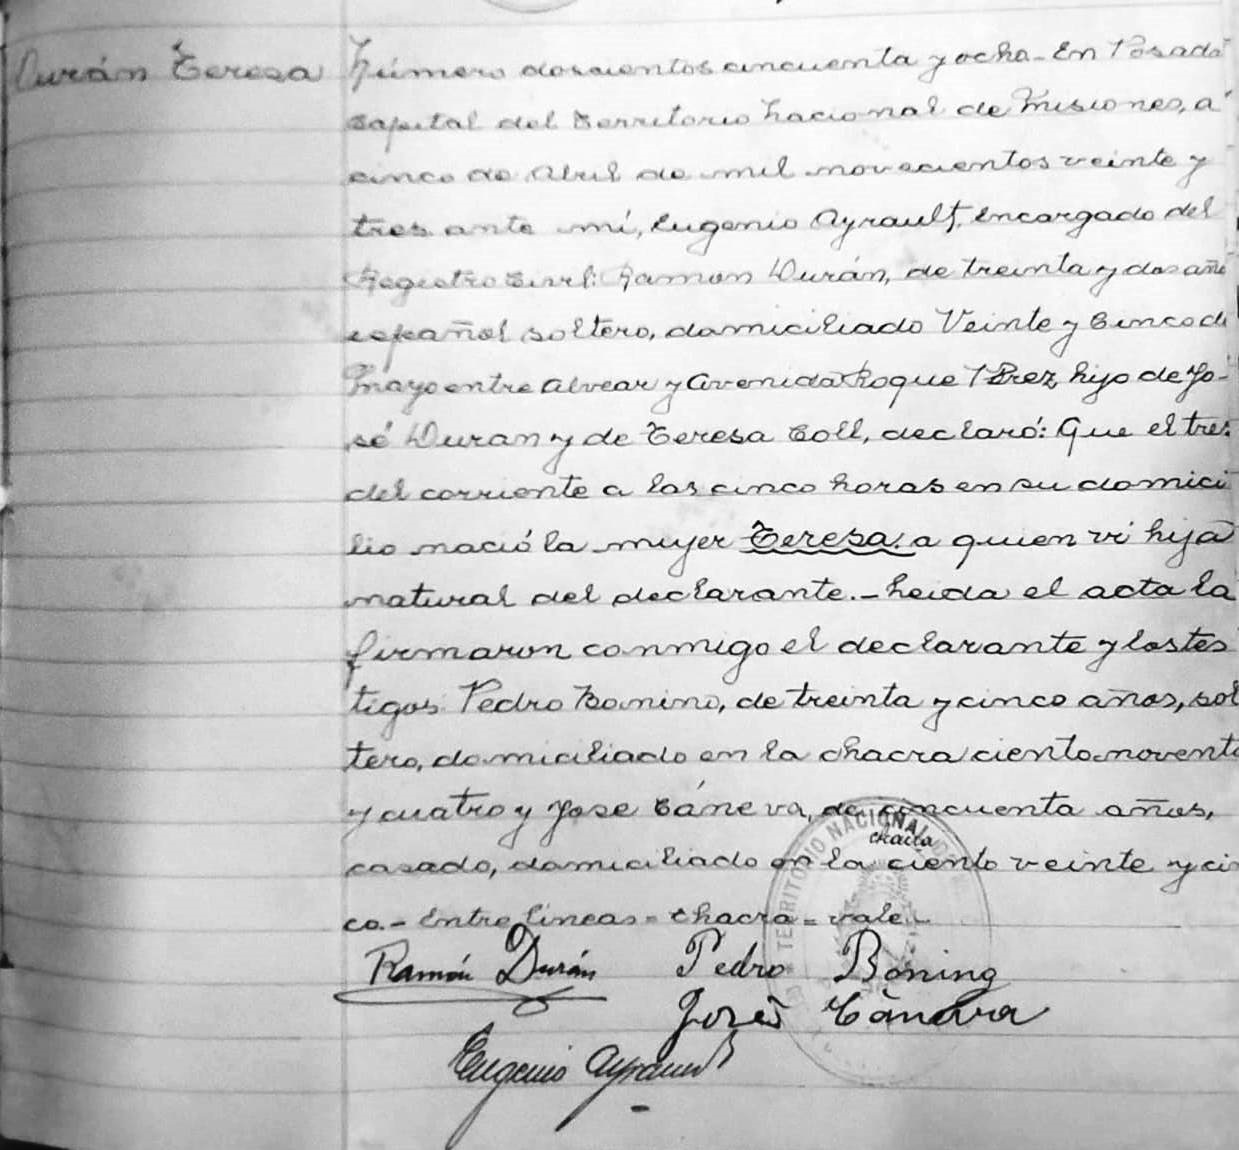 Durán Teresa
Número doscientos cincuenta y ocho - En Posada
capital del Territorio Nacional de Misiones, a
cinco de Abril de mil novecientos veinte y
tres ante mi, Eugenio Ayrault, Encargado del
Registro Civil: Ramon Durán, de treinta y dos añ
español soltero, domiciliado Veinte y Cinco de
Mayo entre Alvear y Avenida Roque Perez, hijo de Jo-
sé Duran y de Teresa Coll, declaró: Que el tres
del corriente a las cinco horas en su domici
lio nació la mujer Teresa, a quien vi hija
natural del declarante. - Leida el acta la
firmaron conmigo el declarante y los tes
tigos Pedro Bonino, de treinta y cinco años, sol
tero, domiciliado en la chacra ciento novent
y cuatro y Jose Cáneva, de cincuenta años,
chacra
casado, domiciliado en la ciento veinte y cin
co. - Entre lineas = chacra = vale. -
TERRITORIO NACIONAL DE
Ramón Durán Pedro Bonino
José Cáneva
Eugenio Ayrault